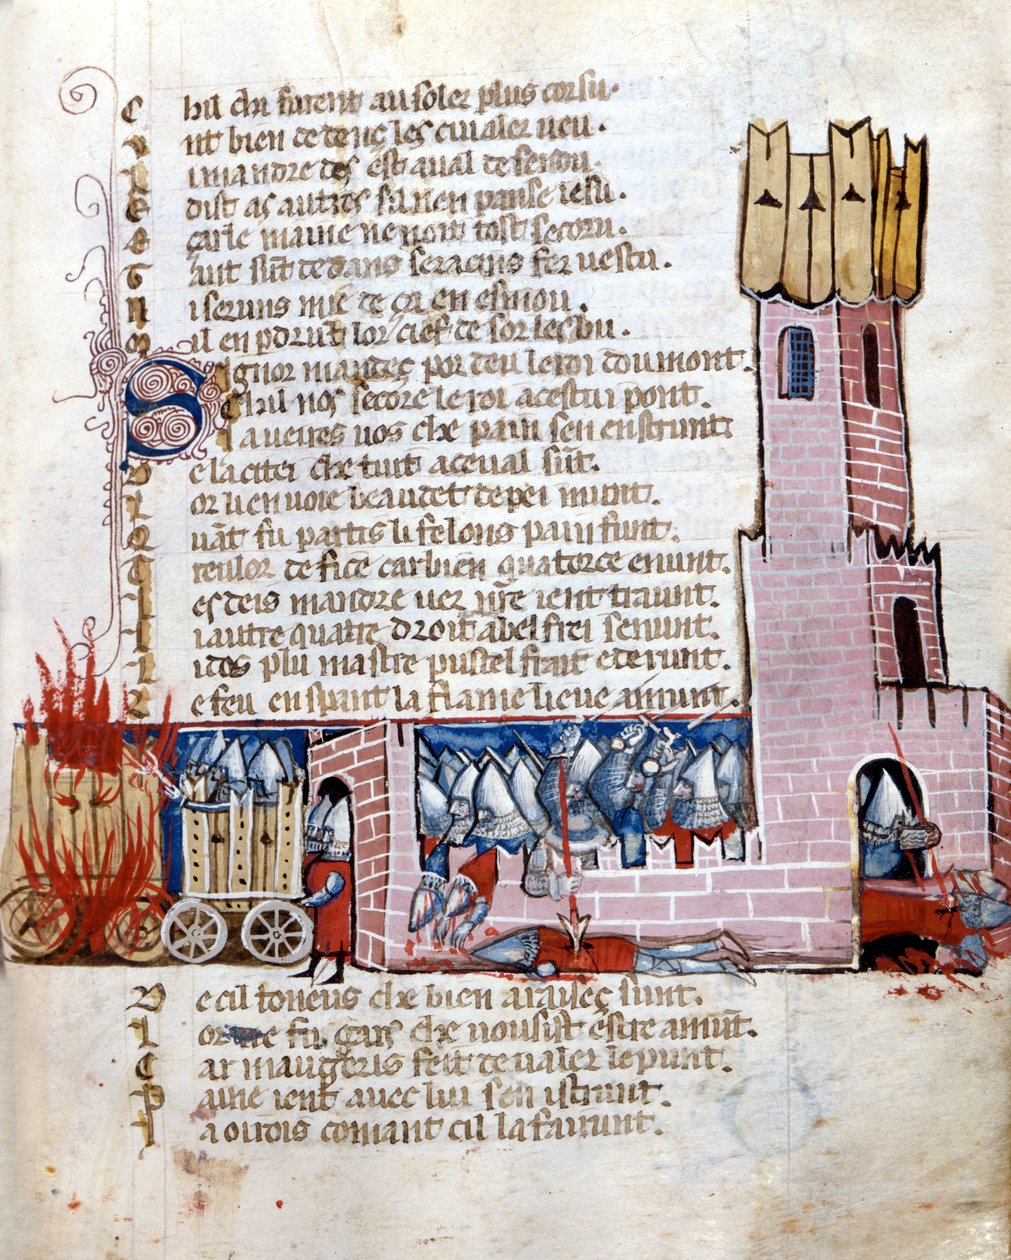 C hil chi furent au soler plus corsu.
nt bien dedenç les civaler veu.
L i mandre des est aval desendu.
E dist as autres panse iesu.
çarle maine ne nont tost secoru.
T uit sunt dedans seraçins fer vestu.
N i seruns mie de ça en esmou.
I il en perdrunt lor cief de sor les bu.
S ignor mandeç por deu le roi dou mont.
C hil nos secore le roi a cestui pont.
I a veires vos che pain sen enstrunt
D e la citez che tuit a ceval sunt.
L or li envoie beaudet de pei munt.
Q uant fu partis li felons pain funt.
T car bien quatorce en unt.
L es deis mandre ver nostre ient traiunt.
L i autre quatre droit a bel frei senunt.
L ides plu mastre pustel frait
L e feu enspant la flame lieve amunt.
D e cil toneus che bien sunt.
L or fu çans che nousist estre amunt.
C ar maugeris feit devaler le punt.
P aine ient avec lui sen istrunt.
comant cil la fairunt.